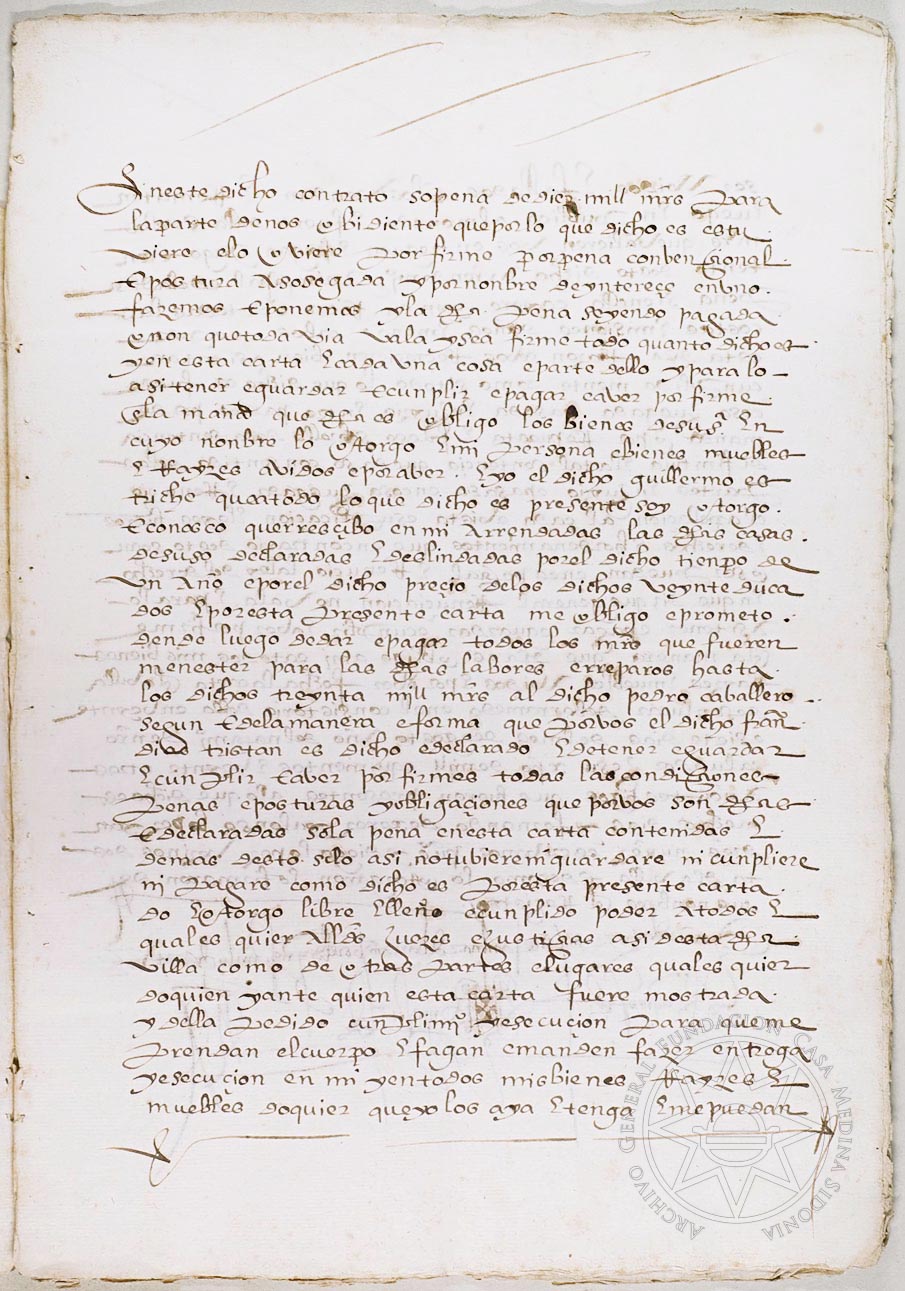 En este dicho contrato so pena de diez mill mrs para
la parte de nos obidiente que por lo que dicho es estu
viere e lo oviere por firme por pena convençional
e postura asosegada y por nonbre de ynterese en uno
fazemos e ponemos y la dha pena seyendo pagada
o non que toda via vala y sea firme todo quanto dicho es
y en esta carta e cada una cosa e parte dello y para lo
asi tener e guardar e cunplir e pagar e aver por firme
que dha es obligo los bienes de su sª en
cuyo nonbre lo otorgo e mi persona e bienes muebles
e rrayzes avidos e por aver. E yo el dicho guillermo es
triche que a todo lo que dicho es presente soy otorgo
e conosco que rresçibo en mi arrendadas las dhas casas
de suso declaradas e deslindadas por el dicho tienpo de
un año e por el dicho preçio de los dichos veynte duca
dos e por esta presente carta me obligo e prometo
dende luego de dar e pagar todos los mrs que fueren
menester para las dhas labores e rreparos hasta
los dichos treynta mill mrs al dicho pedro caballero
segun e de la manera e forma que por vos el dicho franco
tristan es dicho e declarado e de tener e guardar
e cunplir e aver por firmes todas las condiçiones
penas e posturas y obligaçiones que por vos son dhas
e declaradas so la pena en esta carta contenidas e
demas desto si lo asi no tubiere ni guardare ni cunpliere
ni pagare como dicho es por esta presente carta
do e otorgo libre e lleno e cunplido poder a todos e
quales quier allds juezes e justiçias asi desta dha
villa como de otras partes e lugares quales quier
do quier y ante quien esta carta fuere mostrada
y della pedido cunplimio y esecuçion para que me
prendan el cuerpo e fagan e manden fazer entrega
y esecuçion en mi y en todos mis bienes rrayzes e
muebles do quier que yo los aya e tenga e me puedan
ARCHIVO GENERAL FUNDACION CASA MEDINA SIDONIA